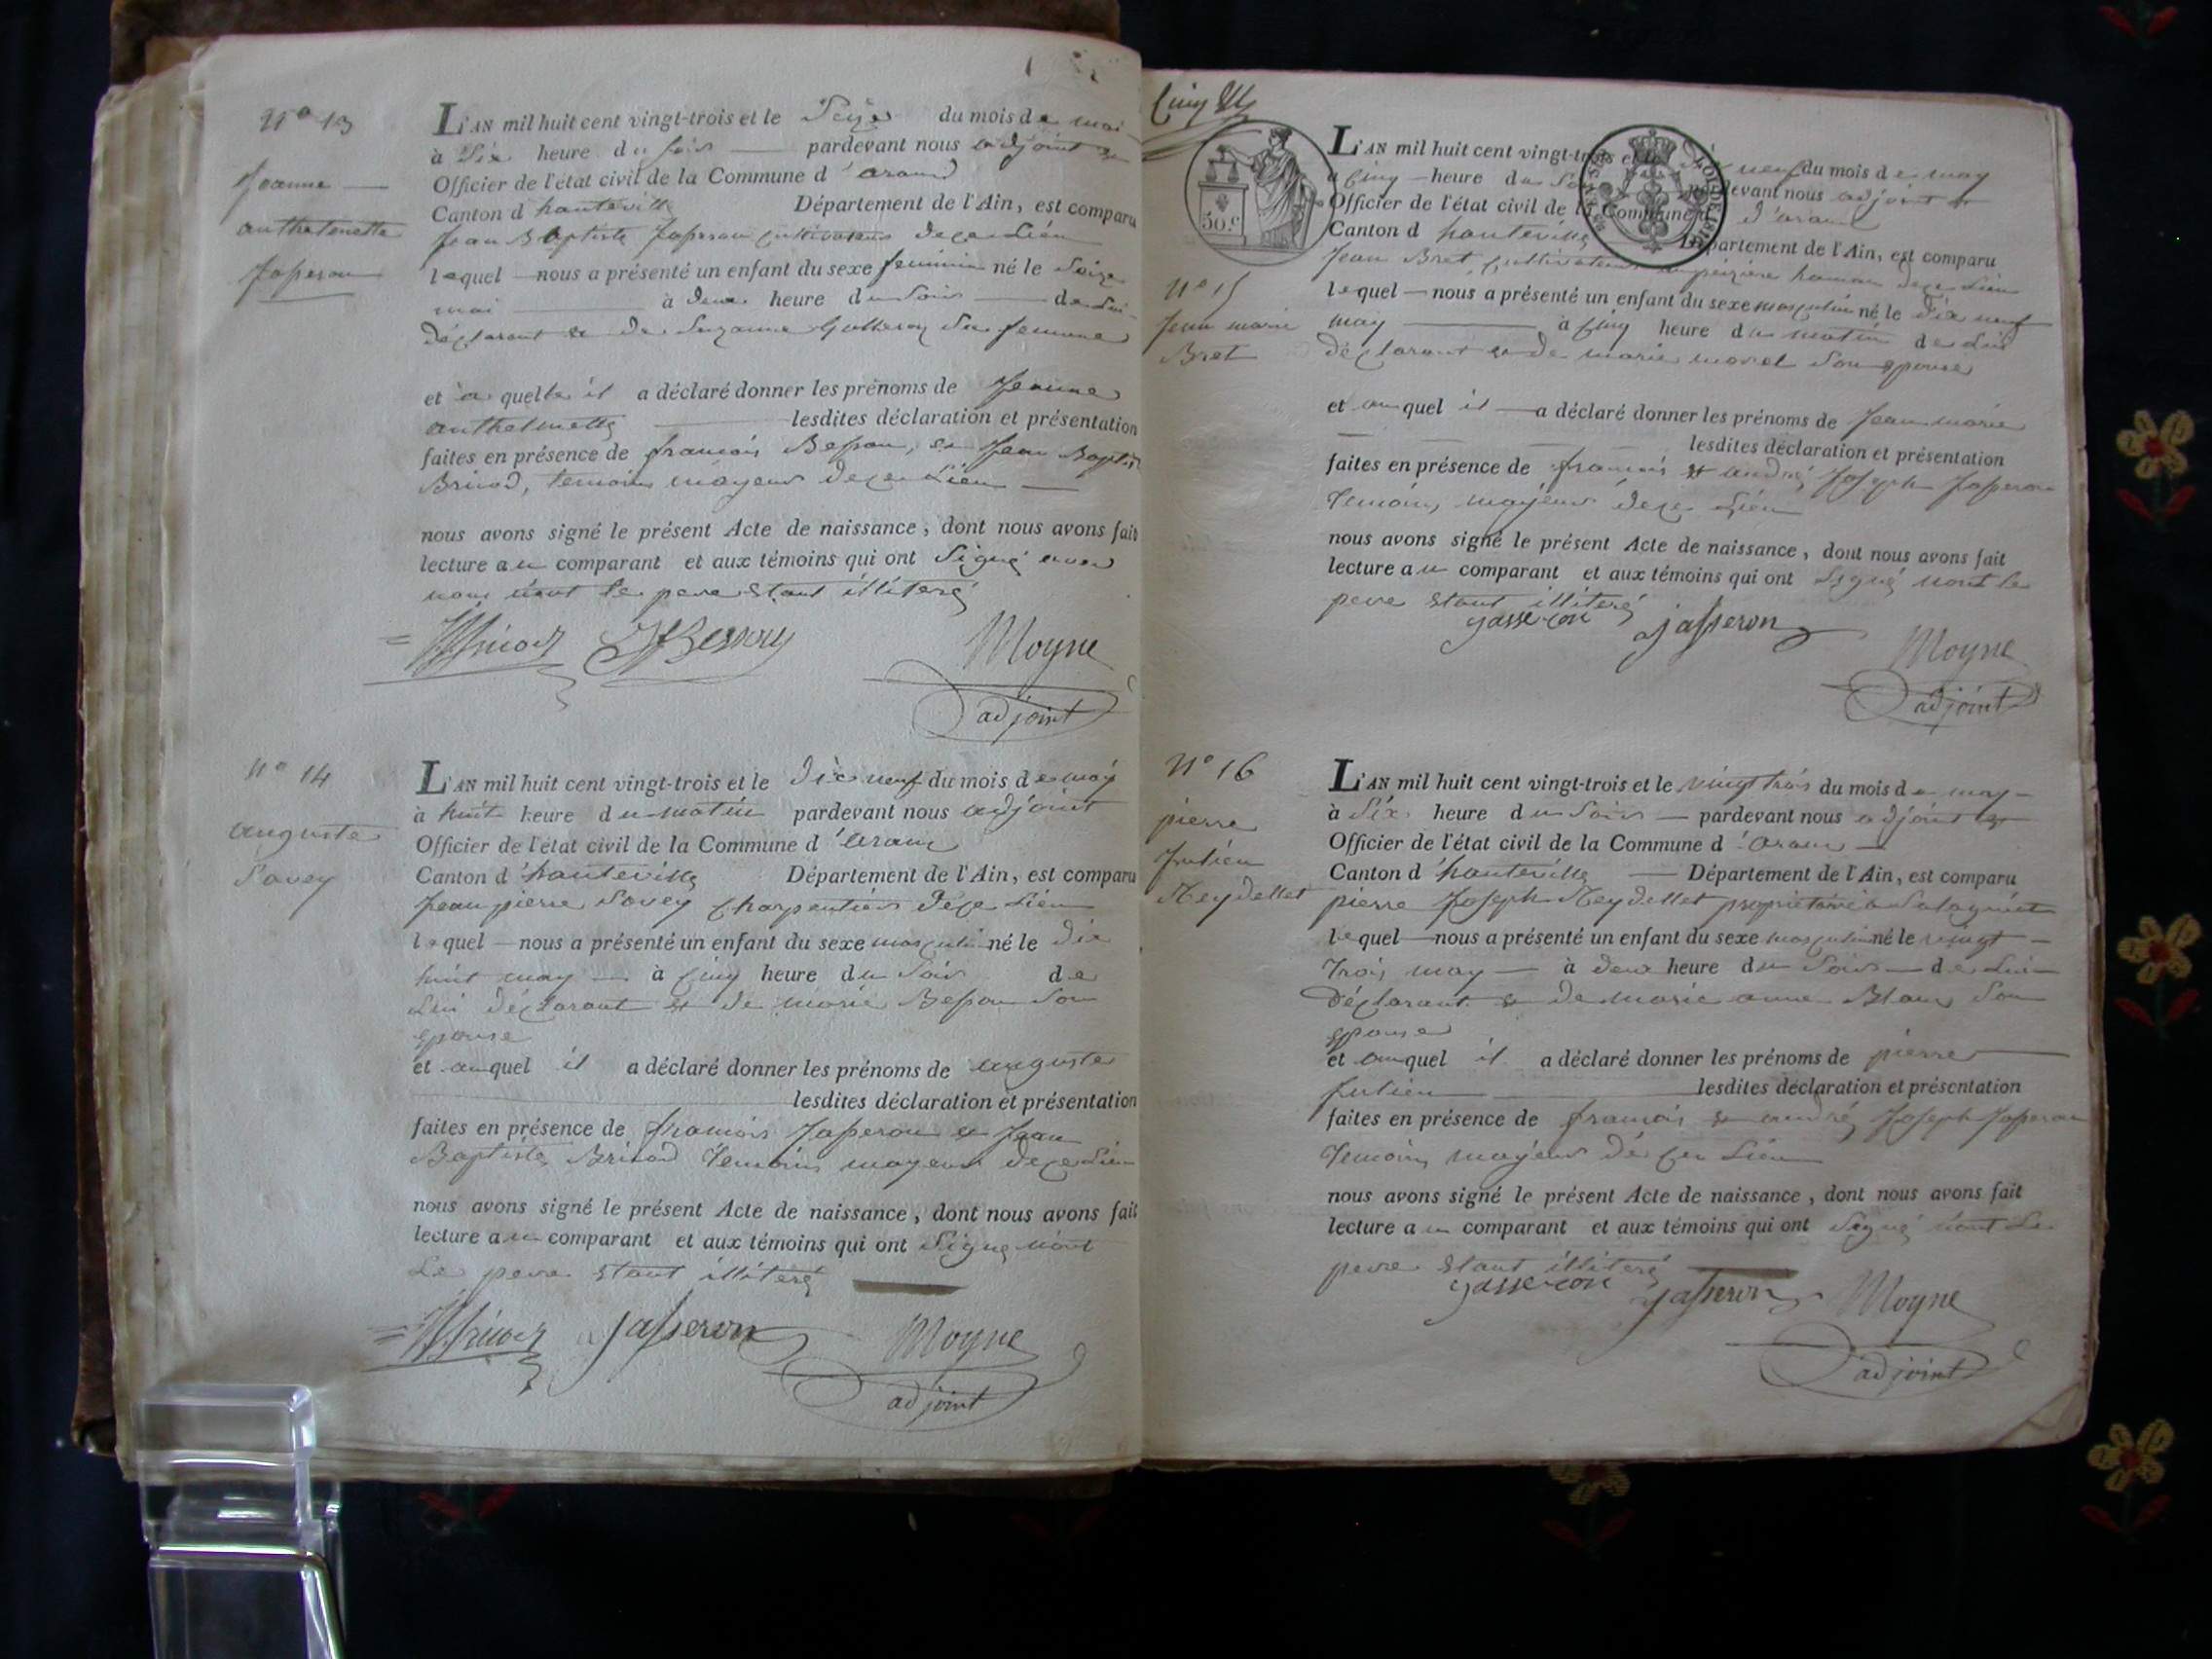 N° 13
Jeanne
anthelmette
Josseron
L'AN mil huit cent vingt-trois et le Seize du mois de mai
à Six heure du soir pardevant nous adjoint et
Officier de l'état civil de la Commune d'aranc
Canton d'hauteville Département de l'Ain, est comparu
Jean Baptiste Josseron cultivateur de ce Lieu
lequel nous a présenté un enfant du sexe feminin né le Seize
mai à deux heure du Soir de Lui
déclarant et de Suzanne Sa femme
et à quelle il a déclaré donner les prénoms de Jeanne
anthelmette lesdites déclaration et présentation
faites en présence de francois Besson, et Jean Baptiste
Brivod, temoins mayeurs de ce Lieu
nous avons signé le présent Acte de naissance, dont nous avons fait
lecture au comparant et aux témoins qui ont Signé avec
nous non le pere Etant illiteré
Brivod Besson Moyne
adjoint
N° 14
auguste
Savey
L'AN mil huit cent vingt-trois et le dix neuf du mois de may
à huit heure du matin pardevant nous adjoint
Officier de l'état civil de la Commune d'aranc
Canton d'hauteville Département de l'Ain, est comparu
Jean pierre Savey charpentier de ce Lieu
lequel nous a présenté un enfant du sexe masculin né le dix
huit may à cinq heure du Soir de
Lui déclarant et de marie Besson Son
epouse
et auquel il a déclaré donner les prénoms de auguste
lesdites déclaration et présentation
faites en présence de francois Josseron et Jean
Baptiste Brivod temoins mayeurs de ce Lieu
nous avons signé le présent Acte de naissance, dont nous avons fait
lecture au comparant et aux témoins qui ont Signé non
Le pere Etant illiteré
Brivod jasseron Moyne
adjoint
Cinq
50.c
N° 15
Jean marie
Bret
L'AN mil huit cent vingt-trois et le Dix neuf du mois de may
à cinq heure du Soir pardevant nous adjoint et
Officier de l'état civil de la Commune d'aranc
Canton d'hauteville Département de l'Ain, est comparu
Jean Bret cultivateur hameau de ce Lieu
lequel nous a présenté un enfant du sexe masculin né le dix neuf
may à cinq heure du matin de Lui
déclarant et de marie morel Son epouse
et auquel il a déclaré donner les prénoms de Jean marie
lesdites déclaration et présentation
faites en présence de francois et andré Joseph Josseron
temoins mayeurs de ce Lieu
nous avons signé le présent Acte de naissance, dont nous avons fait
lecture au comparant et aux témoins qui ont Signé non le
pere Etant illiteré
jasseron jasseron Moyne
adjoint
N° 16
pierre
Julien
Meydellet
L'AN mil huit cent vingt-trois et le vingt trois du mois de may
à Six heure du Soir pardevant nous adjoint et
Officier de l'état civil de la Commune d'aranc
Canton d'hauteville Département de l'Ain, est comparu
pierre Joseph Meydellet proprietaire
lequel nous a présenté un enfant du sexe masculin né le vingt
trois may à deux heure du Soir de Lui
déclarant et de marie anne Blanc Son
epouse
et auquel il a déclaré donner les prénoms de pierre
Julien lesdites déclaration et présentation
faites en présence de francois et andré Joseph Josseron
temoins mayeurs de ce Lieu
nous avons signé le présent Acte de naissance, dont nous avons fait
lecture au comparant et aux témoins qui ont Signé non Le
pere Etant illiteré
jasseron jasseron Moyne
adjoint